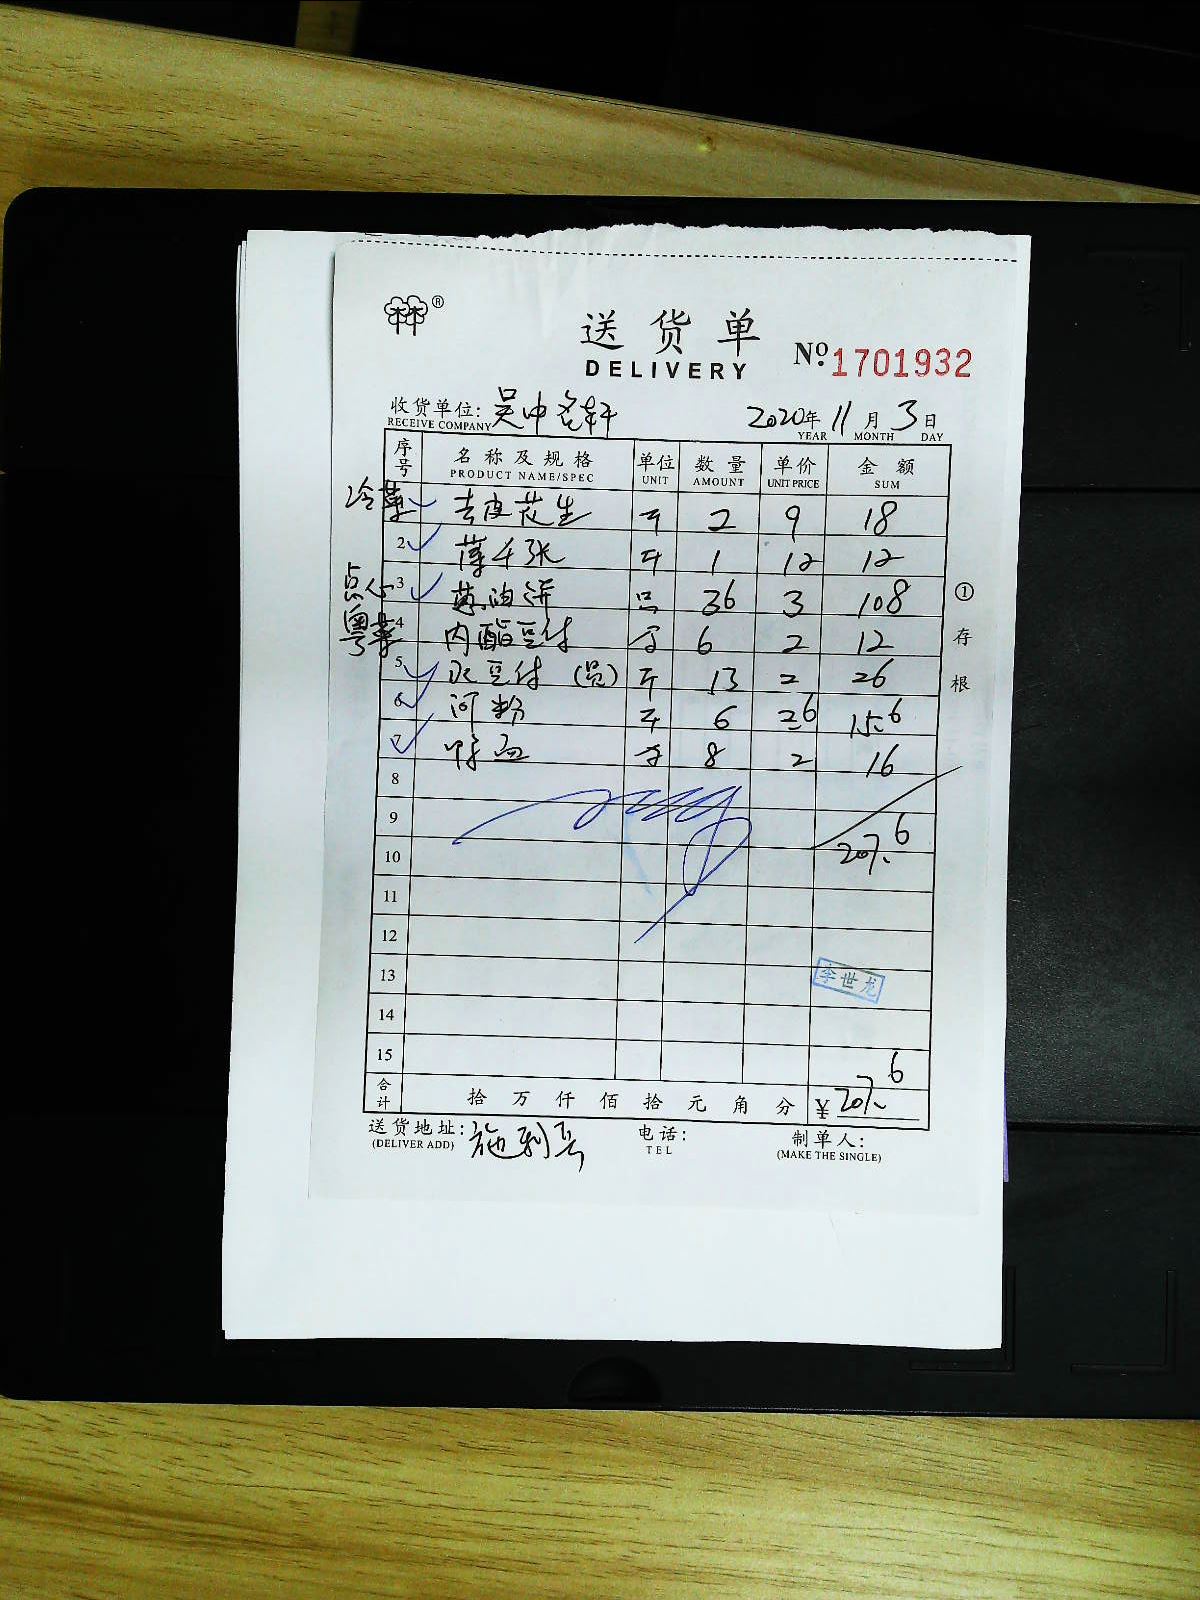 ®
送货单
DELIVERY
№ 1701932
收货单位: 吴中名轩 2020年 11月 3日
RECEIVE COMPANY YEAR MONTH DAY
序号 名称及规格 单位 数量 单价 金额
PRODUCT NAME/SPEC UNIT AMOUNT UNIT PRICE SUM
冷菜 去皮花生 斤 2 9 18
2 薄千张 斤 1 12 12
点心 3 葱油饼 只 36 3 108
粤菜 4 内酯豆付 6 2 12
5 豆付 (员) 斤 13 2 26
6 河粉 斤 6 2.6 15.6
7 鸭血 8 2 16
8
9 207.6
10
11
12
13 李世龙
14
15
合计 拾 万 仟 佰 拾 元 角 分 ¥ 207.6
送货地址: 施利 电话: 制单人:
(DELIVER ADD) TEL (MAKE THE SINGLE)
① 存根